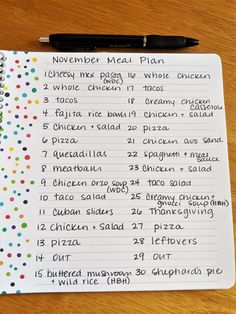 November Meal Plan
1 cheesy mex pasta 16 whole chicken
(WDC)
2 whole chicken 17 tacos
3 tacos 18 creamy chicken
casserole
4 fajita rice bowls 19 chicken + salad
5 chicken + salad 20 pizza
6 pizza 21 chicken avo sand
7 quesadillas 22 spaghetti + meat
sauce
8 meatballs 23 chicken + salad
9 chicken orzo soup 24 taco salad
(WDC)
10 taco salad 25 creamy chicken +
gnocci soup (HBH)
11 cuban sliders 26 Thanksgiving
12 chicken + salad 27 pizza
13 pizza 28 leftovers
14 out 29 out
15 buttered mushroom 30 shephard's pie
+ wild rice (HBH)